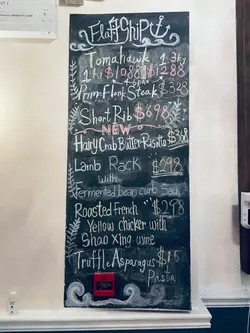 Flag Ship
Tomahawk 1.3kg
$1088 $1288
4-6 pax
Prime Flank Steak $328
Short Rib $698
NEW
Hairy Crab Butter Risotto $368
Lamb Rack $298
with
Fermented bean curb Sau
Roasted French $298
Yellow chicken with
Shao Xing wine
Truffle Asparagus
Pasta